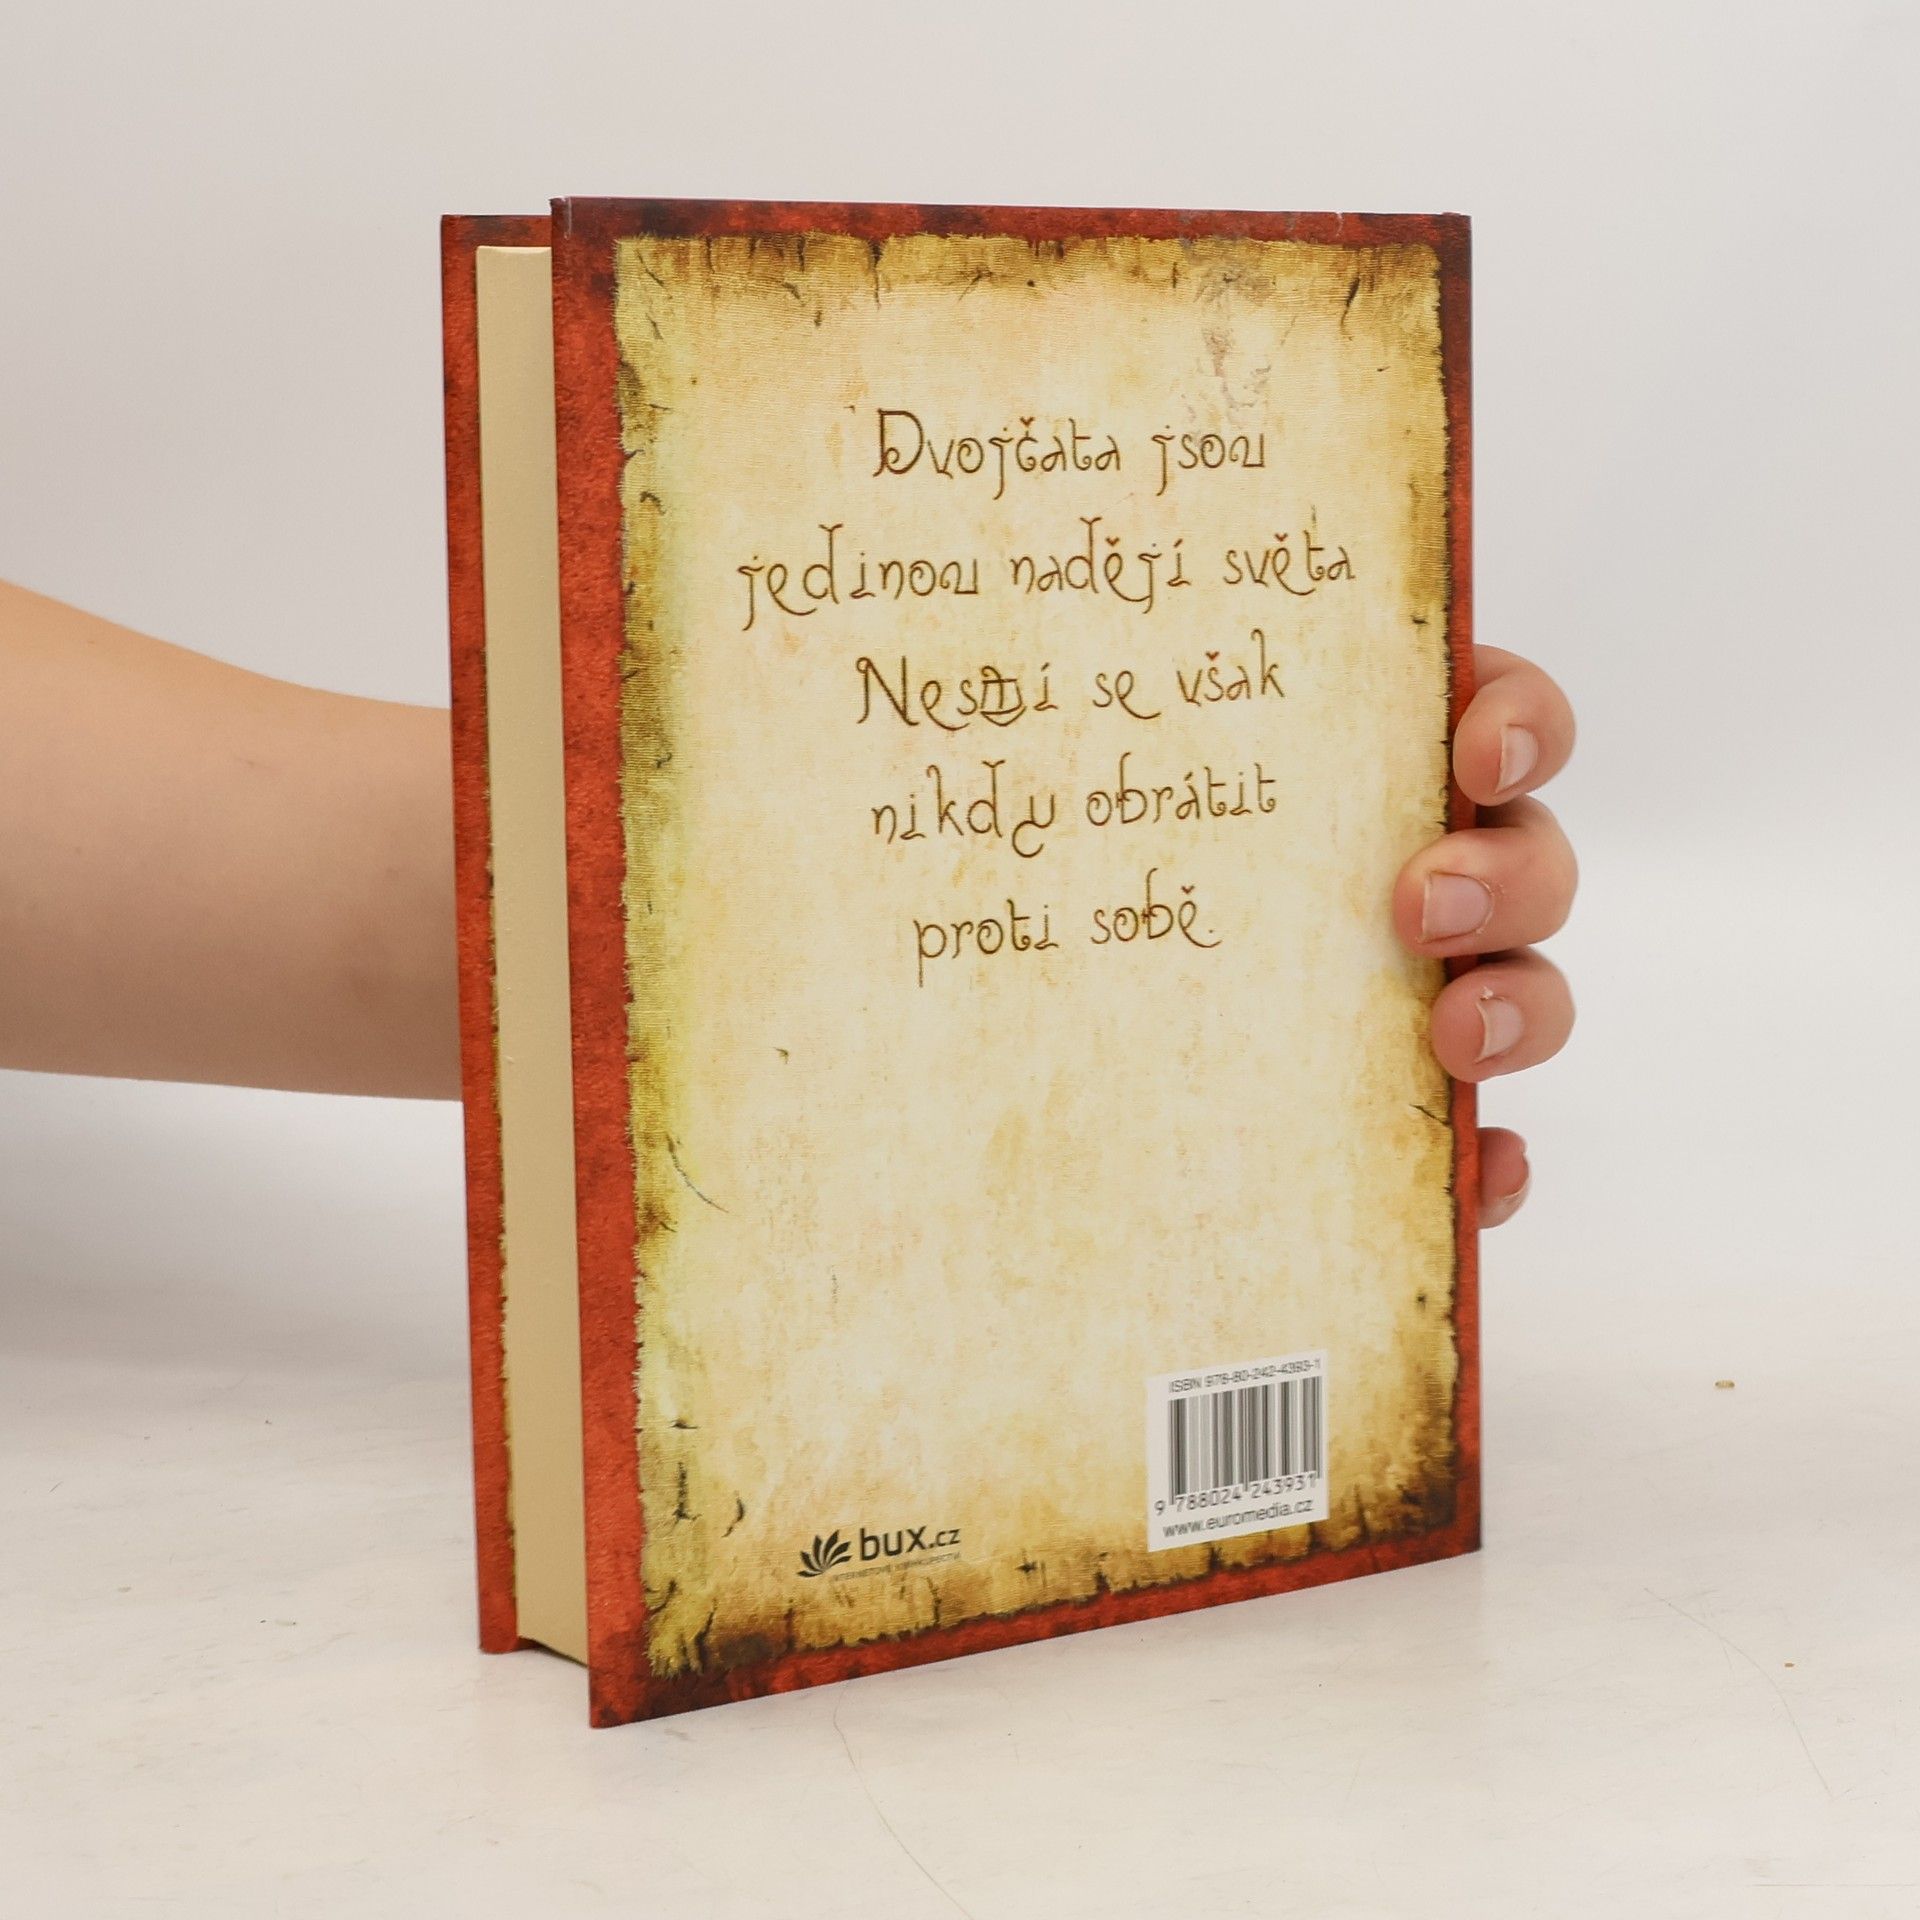 Dvojčata jsou
jedinou nadějí světa
Nesmí se však
nikdy obrátit
proti sobě.
ISBN 978-80-242-4393-1
9 788024 243931
www.euromedia.cz
bux.cz
INTERNETOVÉ KNIHKUPECTVÍ